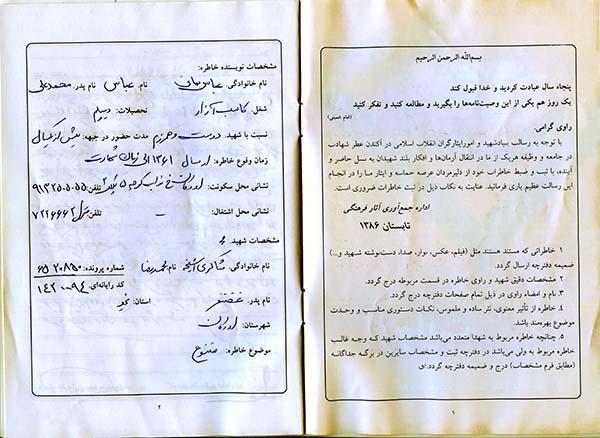 بسم‌الله الرحمن الرحیم
پنجاه سال عبادت کردید و خدا قبول کند
یک روز هم یکی از این وصیت‌نامه‌ها را بگیرید و مطالعه کنید و تفکر کنید
(امام خمینی)
راوی گرامی،
با توجه به رسالت بنیادشهید و امورایثارگران انقلاب اسلامی در آکندن عطر شهادت
در جامعه و وظیفه هریک از ما در انتقال آرمان‌ها و افکار بلند شهیدان به نسل حاضر و
آینده، با ثبت و ضبط خاطرات خود از دلیرمردان عرصه حماسه و ایثار ما را در انجام
این رسالت عظیم یاری فرمائید. عنایت به نکات ذیل در ثبت خاطرات ضروری است.
اداره جمع‌آوری آثار فرهنگی
تابستان ۱۳۸۶
۱ خاطراتی که مستند هستند مثل (فیلم، عکس، نوار، صدا، دست‌نوشته شهید و...)
ضمیمه دفترچه ارسال گردد.
۲ مشخصات دقیق شهید و راوی خاطره در قسمت مربوطه درج گردد.
۳. نام و امضاء راوی در ذیل تمام صفحات دفترچه درج گردد.
۴ خاطره از تأثیر معنوی، نثر ساده و ملموس، نکات دستوری مناسب و وحدت
موضوع بهره‌مند باشد.
۵ چنانچه خاطره مربوط به شهدا متعدد می‌باشد مشخصات شهید که وجه غالب
خاطره مربوط به وی می‌باشد در دفترچه ثبت و مشخصات سایرین در برگه جداگانه
(مطابق فرم مشخصات) درج و ضمیمه دفترچه گردد.
۱
مشخصات نویسنده خاطره:
نام خانوادگی: عباس نام: عباس نام پدر: محمدعلی
شغل: کاسب آزاد تحصیلات: دیپلم
نسبت با شهید: دوست و همرزم مدت حضور در جبهه: بیش از یکسال
زمان وقوع خاطره: از سال ۱۳۶۱ الی زمان شهادت
نشانی محل سکونت: اردکان تلفن:
نشانی محل اشتغال: تلفن: ۷۲۲۶۶۶۲
مشخصات شهید:
نام خانوادگی: شاکری نام: محمدرضا شماره پرونده: ۶۵۲۰۸۵۰
کد رایانه‌ای:
نام پدر: غضنفر استان: یزد
شهرستان: اردکان
موضوع خاطره: متنوع
۲